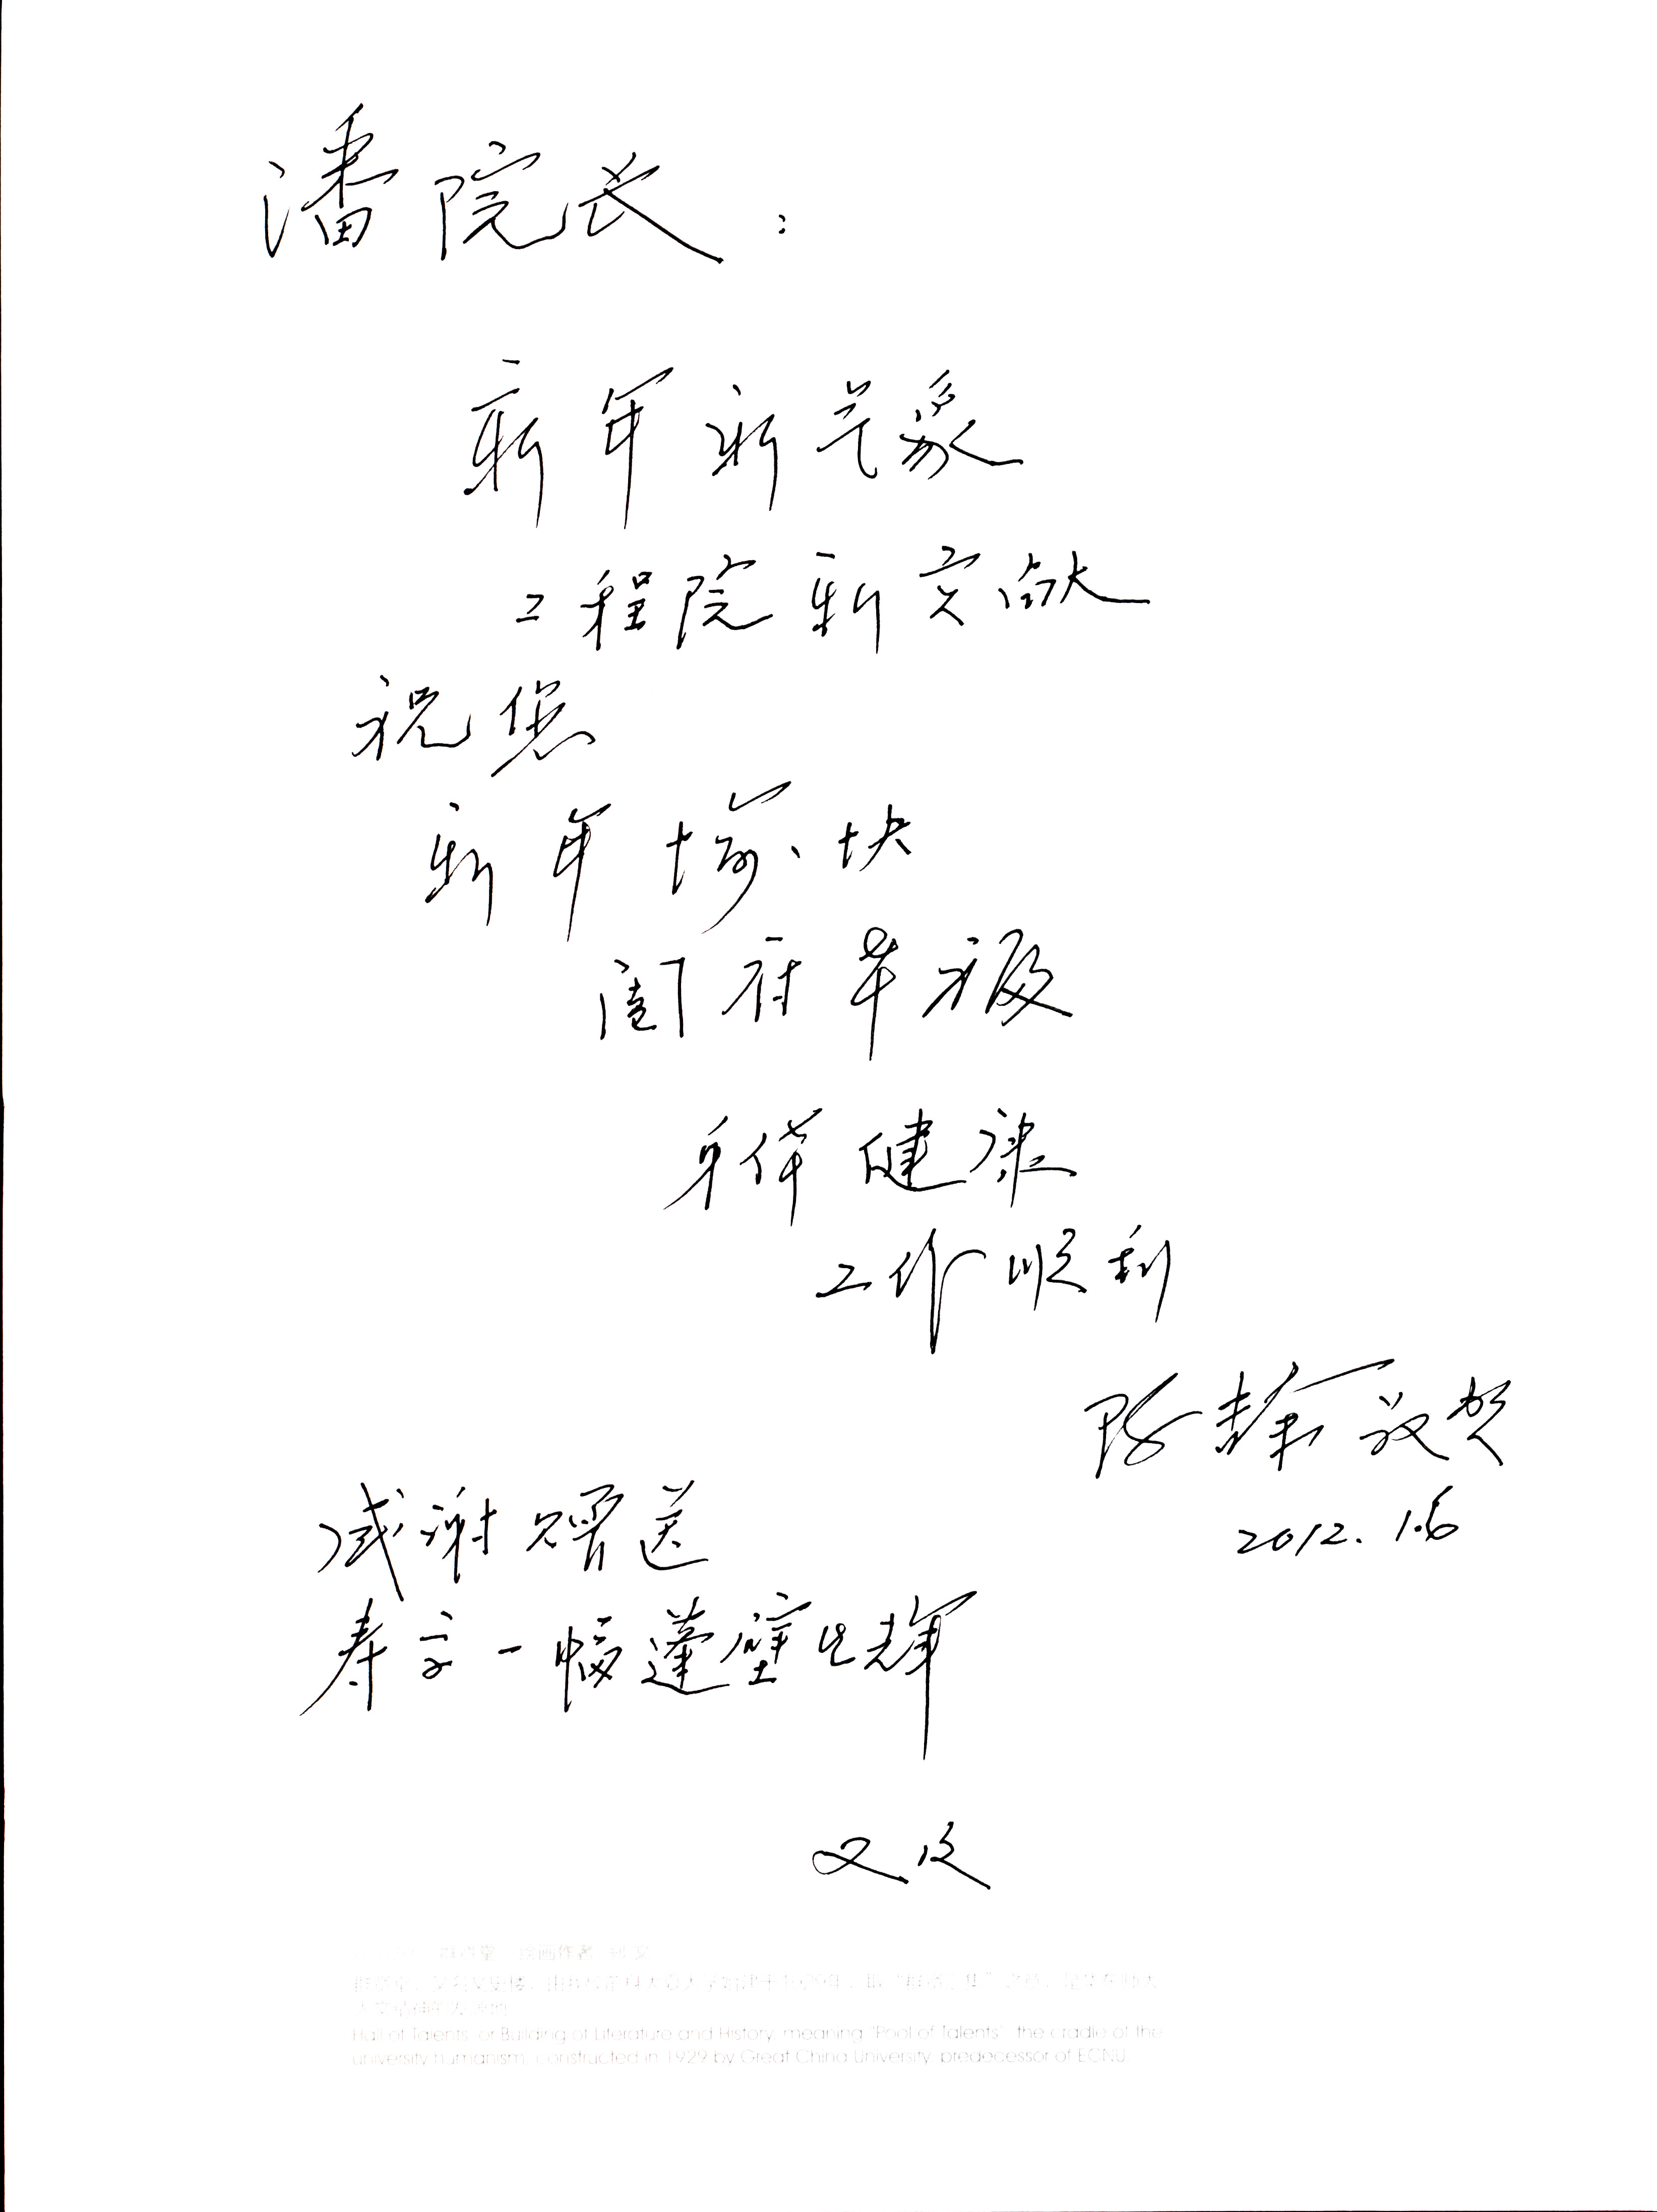 潘院长：
新年新气象
工程院新贡献
祝您
新年愉快
阖府幸福
身体健康
工作顺利
陈群敬贺
2012.1.6
感谢赠送
寿字一幅蓬壁生辉
又及
群贤堂 绘画作者
Hall of Talents, or Building of Literature and History, meaning "Pool of Talents", the cradle of the
university humanism, constructed in 1929 by Great China University, predecessor of ECNU